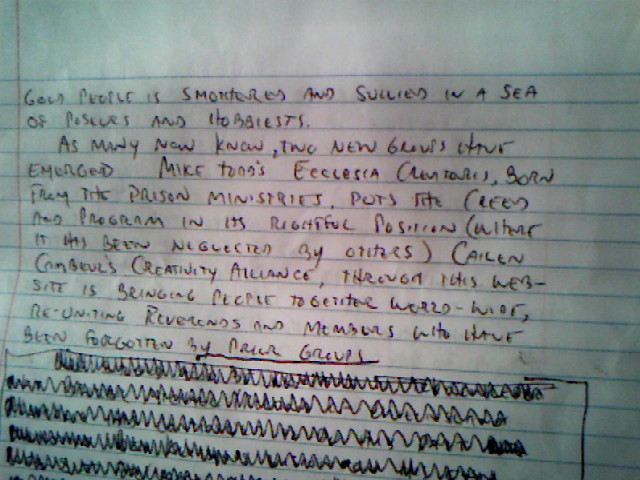 GOOD PEOPLE IS SMOTHERED AND SULLIED IN A SEA
OF POSEURS AND HOBBIESTS.
AS MANY NOW KNOW, TWO NEW GROUPS HAVE
EMERGED MIKE TODD'S ECCLESIA CREATORIS, BORN
FROM THE PRISON MINISTRIES, PUTS THE CREED
AND PROGRAM IN ITS RIGHTFUL POSITION (WHERE
IT HAS BEEN NEGLECTED BY OTHERS) CAILEN
CAMBEUL'S CREATIVITY ALLIANCE, THROUGH THIS WEB-
SITE IS BRINGING PEOPLE TOGETHER WORLD-WIDE,
RE-UNITING REVERENDS AND MEMBERS WHO HAVE
BEEN FORGOTTEN BY PRIOR GROUPS